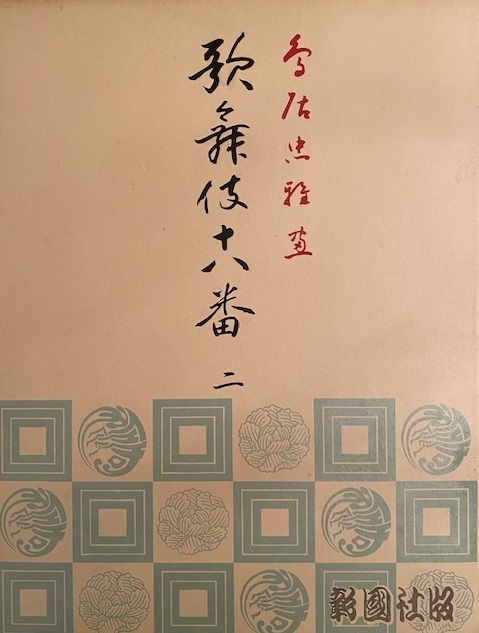 鳥居忠雅画
歌舞伎十八番 二
彰國社版